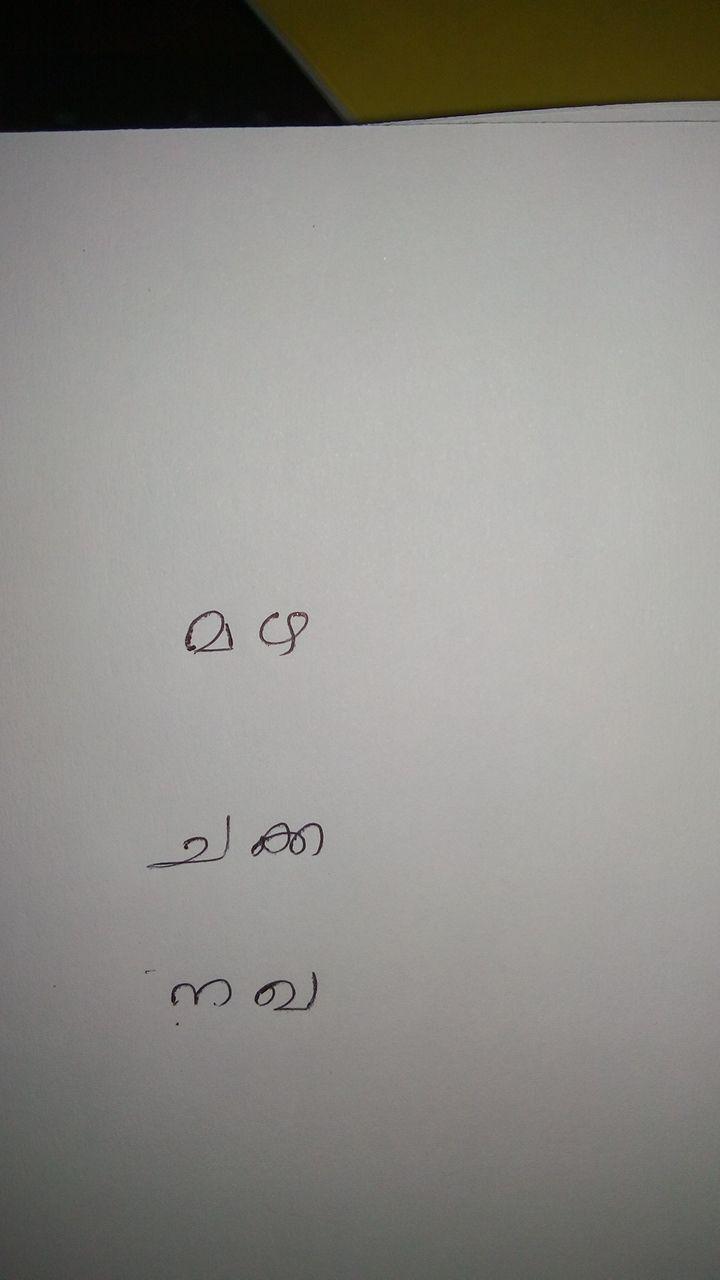 മഴ
ചക്ക
നഖ